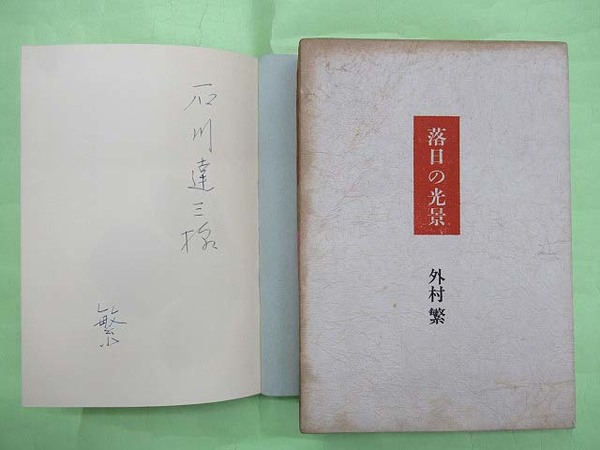 石川達三様
繁
落日の光景
外村繁